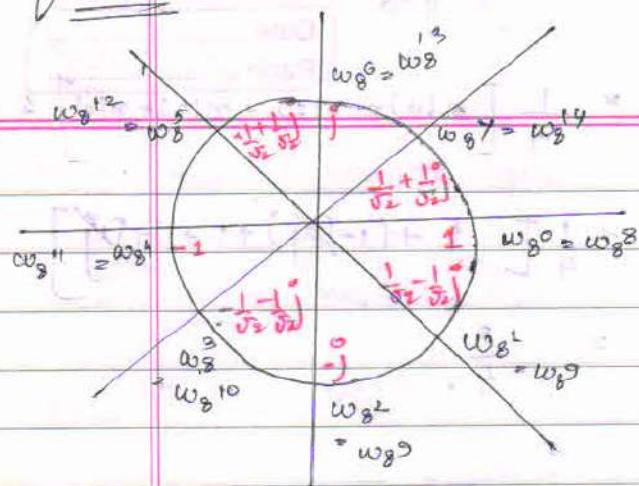 w8^6 = w8^13
w8^12
= w8^5
w8^7 = w8^14
-1/√2 + 1/√2 j
j
1/√2 + 1/√2 j
w8^11 = w8^4
-1
1
w8^0 = w8^8
-1/√2 - 1/√2 j
1/√2 - 1/√2 j
-j
w8^3
= w8^10
w8^1
= w8^9
w8^2
= w8^9